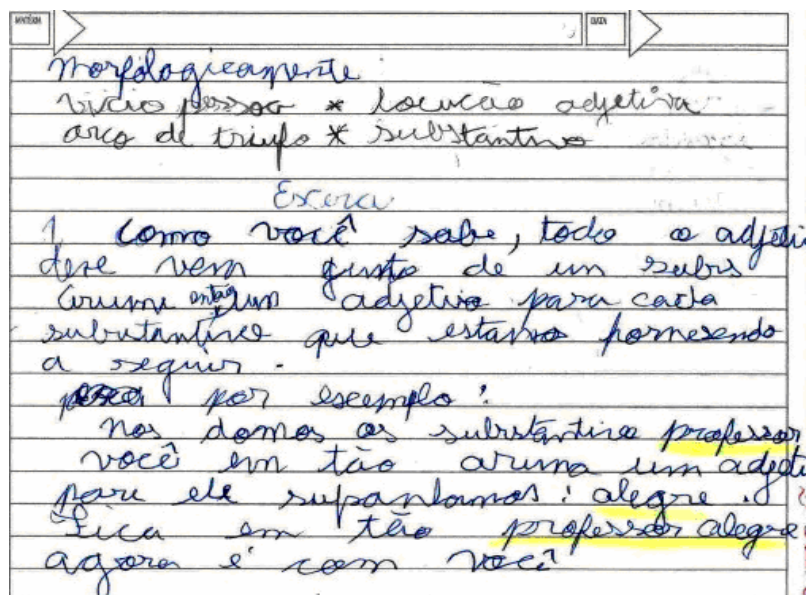 MATÉRIA DATA
Morfologicamente
vicio pessoa * locucão adjetiva
arco de triufo * substantivo
Exerci
1 Como você sabe, todo o adjeti
deve vem gunto de um subs
Arume entao um adjetivo para cada
substantivo que estamos fornesendo
a seguir.
por escemplo:
nos domos os substantivo professor
você em tão aruma um adjeti
para ele supanhamos: alegre.
Fica em tão professor alegre
agora é com você